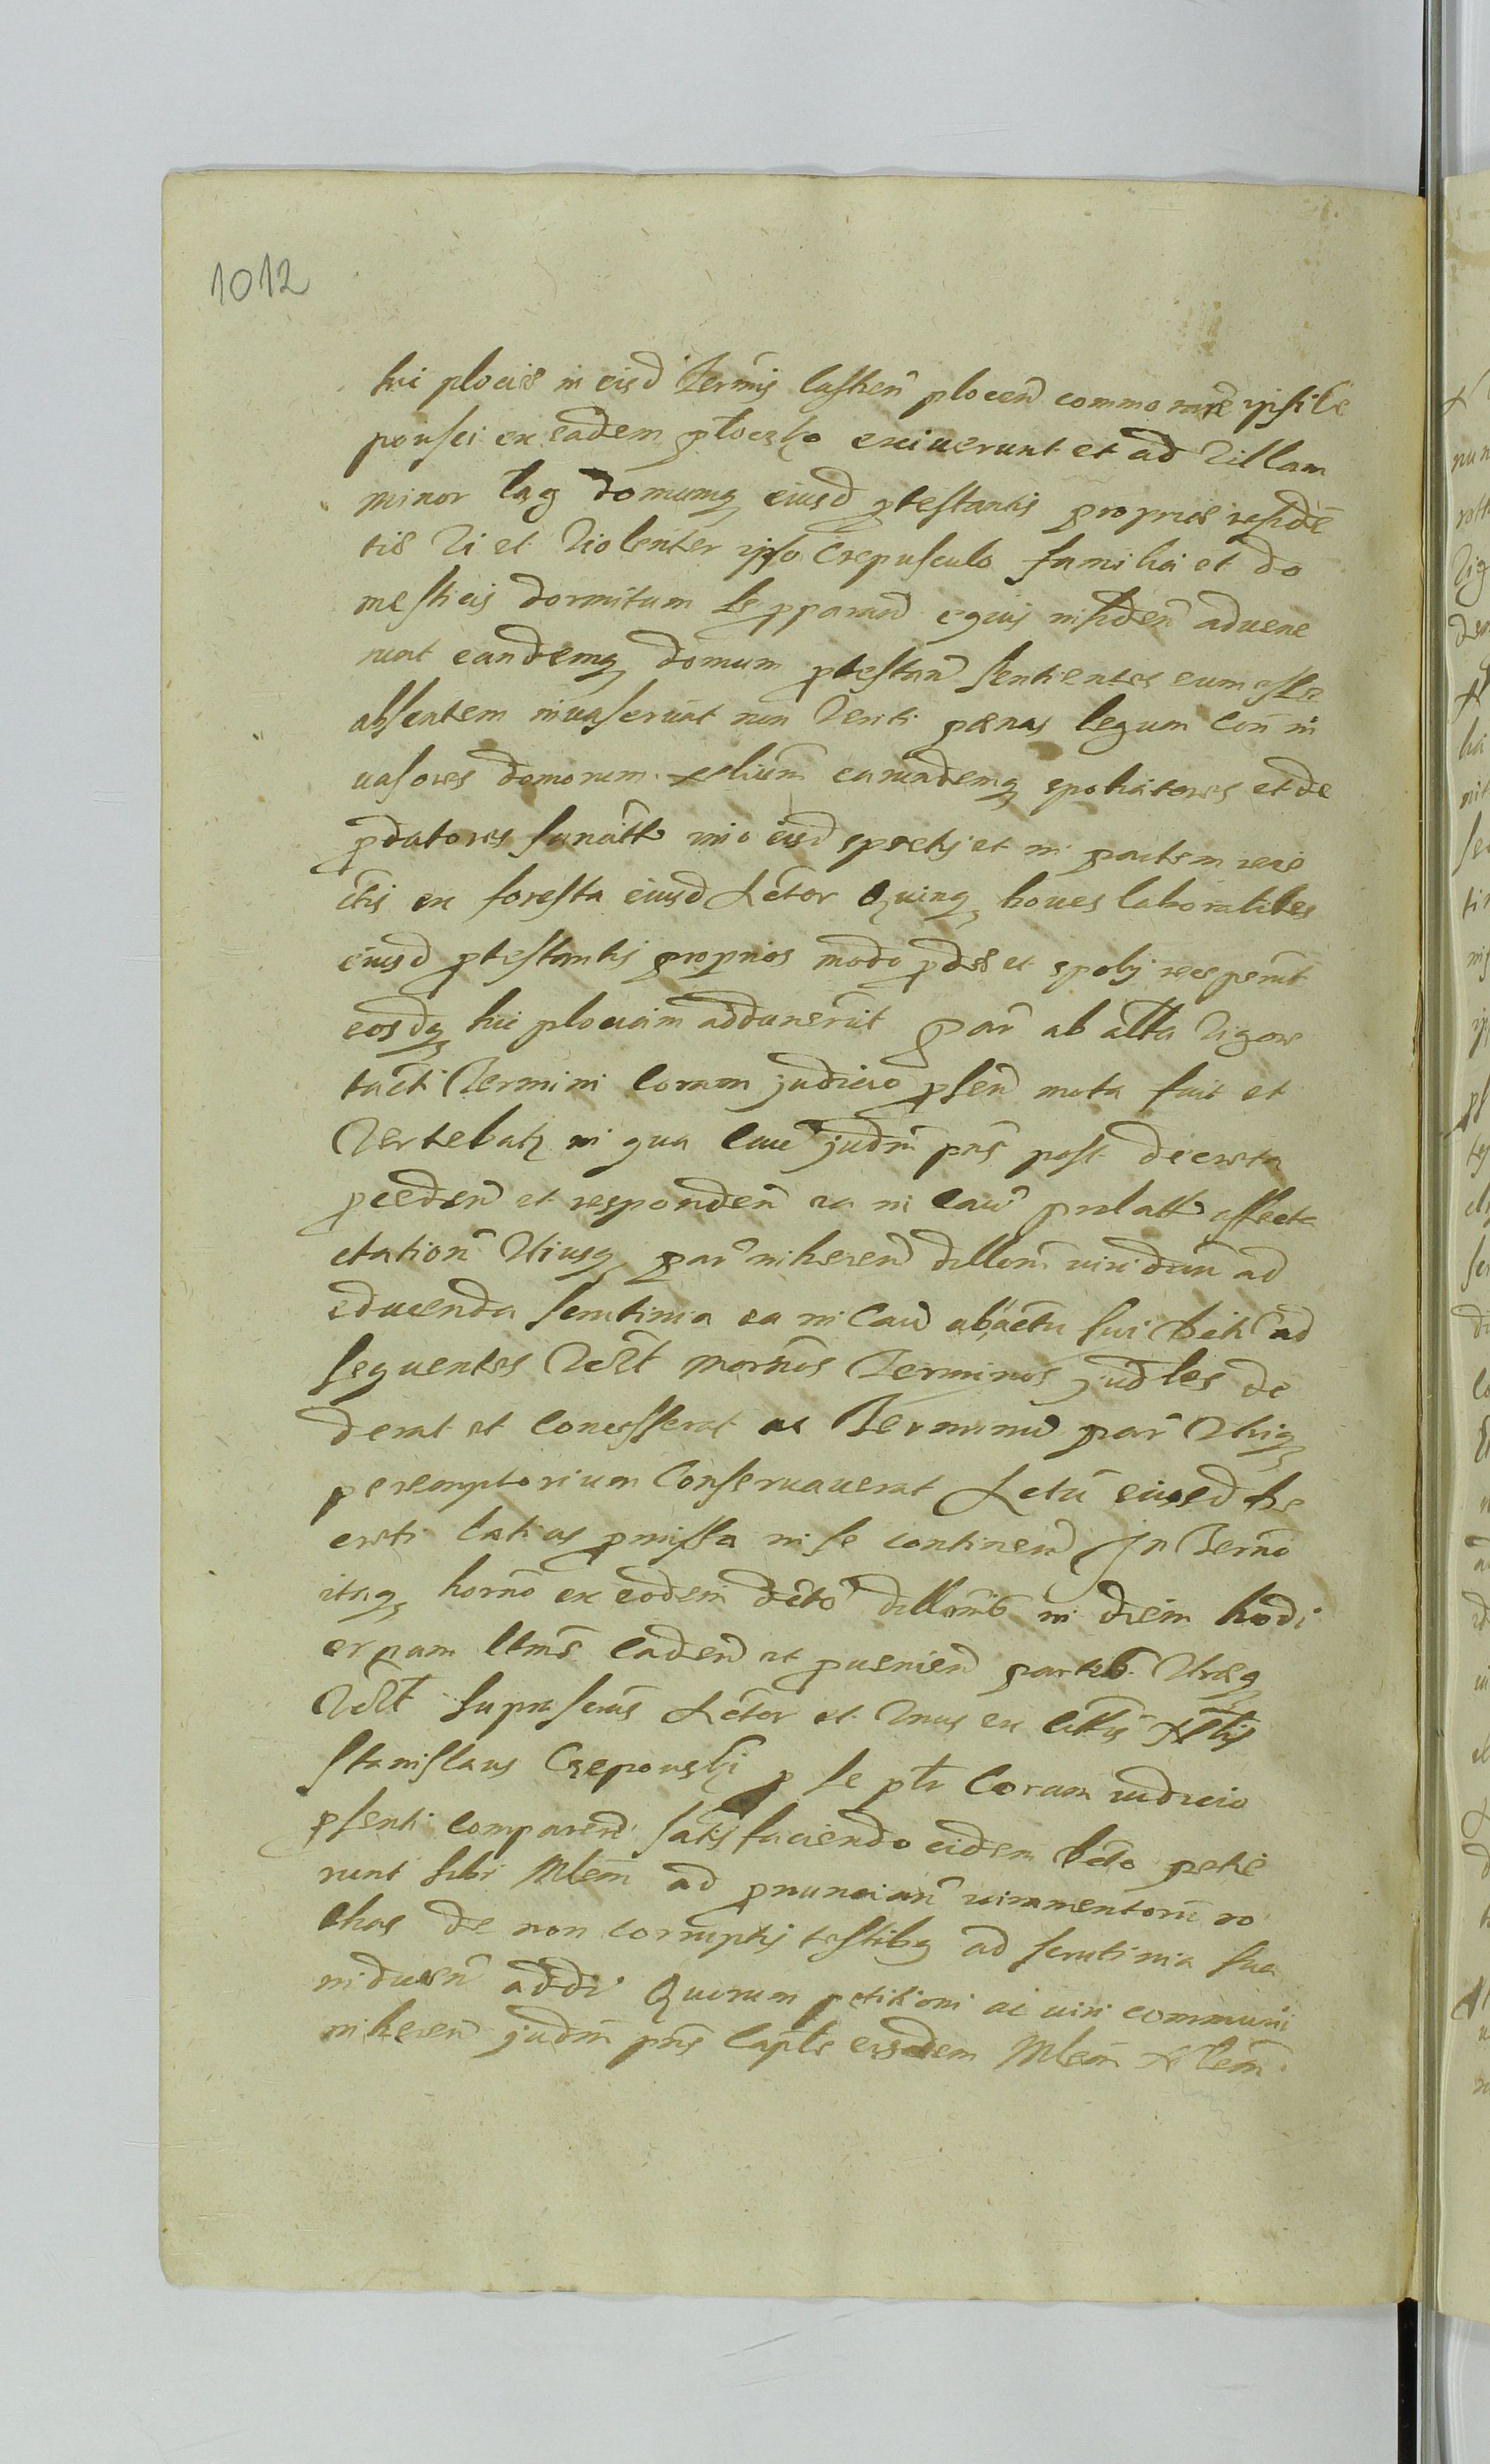 1012
hic plociæ in eisd Termis castren plocen commoran ipsi Cze
powsci ex eadem płoczko exiuerunt et ad Villam
minor Łag domumq eiusd ptestantis propriæ residē
tiæ Vi et Violenter ipso Crepusculo familia et do
mesticis dormitum se pparand equis insiden aduene
runt eandemq domum ptestan sentientes eum esse
absentem inuaserunt non Veriti pœnas legum con in
uasores domorum earundemq spoliatores et de
pdatores sancitt imo eisd spretis et in partem reie
ctis ex foresta eiusd Actor Quinq boues laborabiles
eiusd ptestantis proprios modo pdæ et spoly receperūt
eosdq huc plociam adduxerūt par ab altta Vigore
tacti Termini Coram judicio psen mota fuit et
Vertebatz in qua cau judm pns post decreta
pceden et responden ea in cau prolatt affecta
ctation Vtriusq par inheren dillom ad
educenda scrutinia ea in cau ab actu sui Deti ad
sequentes Vdt Termios judles de
derat et Concesserat ac Terminu par Vtriq
peremptorium Conseruauerat Actu eiusd de
creti latius pmissa in se continen In Termo
itaq horno ex eodem Dcto dillomis in diem hodi
ernam caden et puenien partib Vtrisq
Vdt suprascrus Actor et Vnus ex cittis
Stanislaus Czepowski p se ptr Coram iudicio
psenti comparen satisfaciendo eidem Dcto petie
runt sibi Mlem ad pnuncian iuramentorū ro
thas de non corruptis testibq ad scrutinia sua
inducen addi Quorum petitioni ac uiri communi
inheren judm pns Captle eisdem Mlem